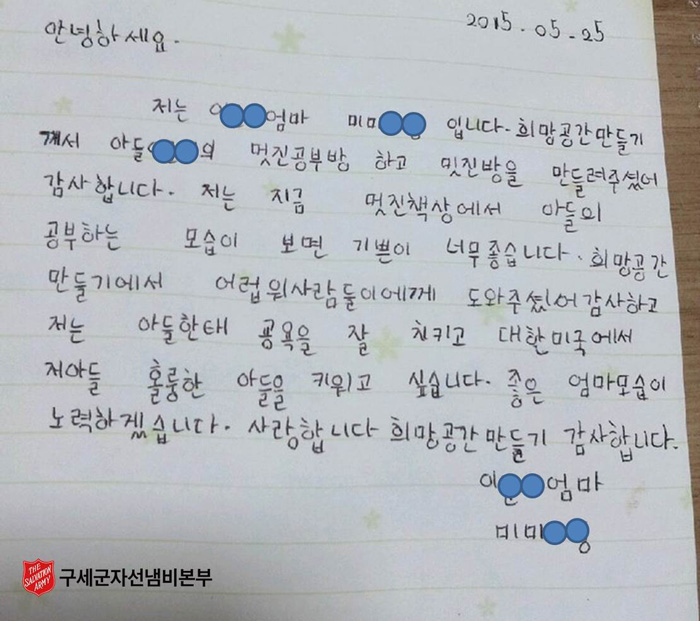 2015.05.25
안녕하세요.
저는 엄마 미미 입니다. 희망공간만들기
께서 아들 의 멋진공부방 하고 밌진방을 만들려주셨어
감사합니다. 저는 지금 멋진책상에서 아들의
공부하는 모습이 보면 기쁜이 너무좋습니다. 희망공간
만들기에서 어럽워사람둘이에게 도와주셨어감사하고
저는 아들한태 공욕을 잘 치키고 대한미국에서
저아들 홀룽한 아들을 키워고 싶습니다. 좋은 엄마모습이
노력하겠습니다. 사랑합니다 희망공간만들기 감사합니다.
이 엄마
미미
THE SALVATION ARMY
구세군자선냄비본부